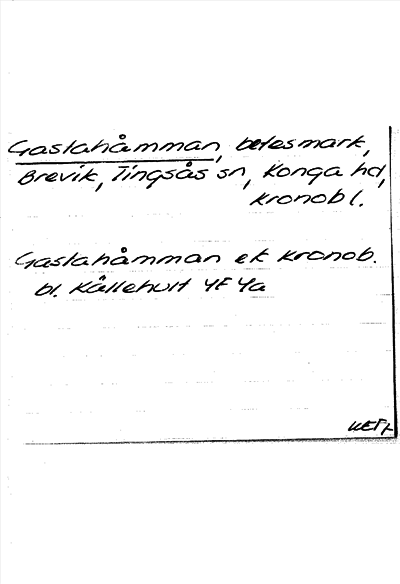 Gastahåmman, betesmark,
Brevik, Tingsås sn, Konga hd,
Kronob l.
Gastahåmman ek Kronob.
bl. Kållehult 4F 4a